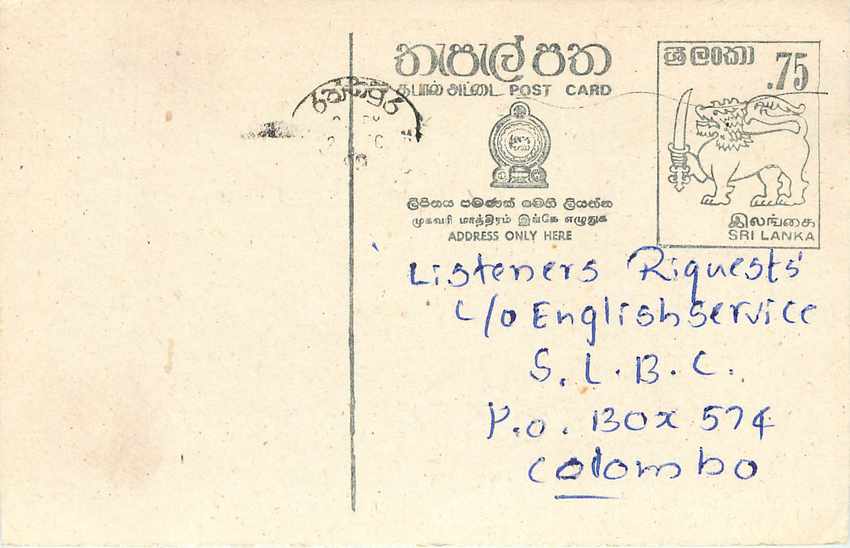 තැපැල් පත
தபால் அட்டை POST CARD
ශ්‍රී ලංකා
.75
රත්නපුර
ලිපිනය පමණක් මෙහි ලියන්න
முகவரி மாத்திரம் இங்கே எழுதுக
ADDRESS ONLY HERE
இலங்கை
SRI LANKA
'Listeners Riquests'
C/o English service
S. L. B. C.
P.o. Box 574
Colombo